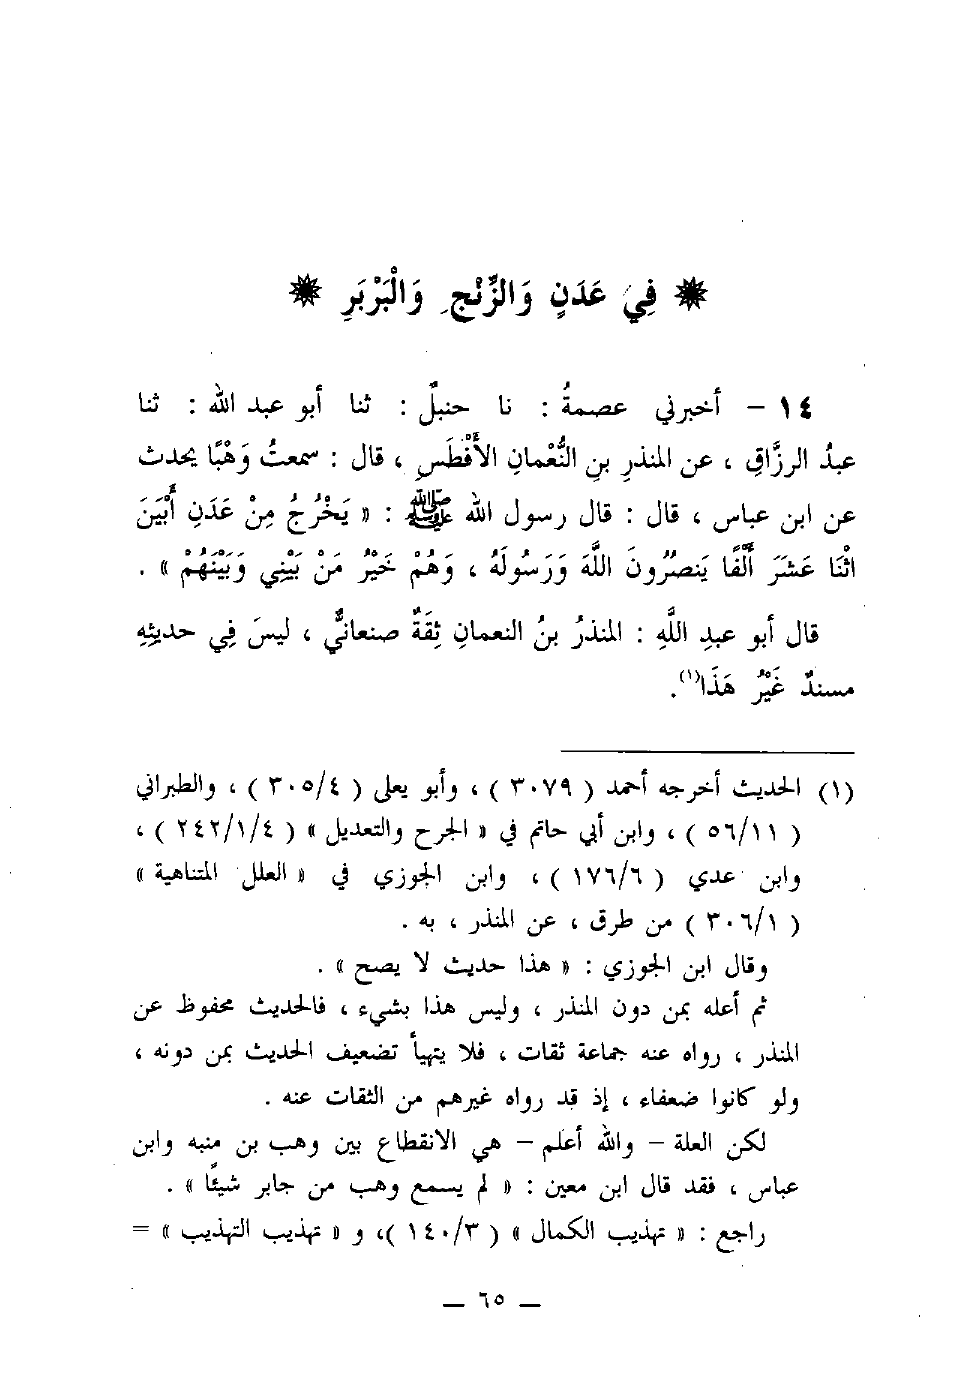 ❋ فِي عَدَنٍ وَالزِّنْجِ وَالْبَرْبَرِ ❋
١٤ – أخبرني عصمةُ : نا حنبلٌ : ثنا أبو عبد الله : ثنا
عبدُ الرزَّاقِ ، عن المنذرِ بنِ النُّعْمانِ الأَفْطَسِ ، قال : سمعتُ وَهْبًا يحدث
عن ابن عباس ، قال : قال رسول الله ﷺ : « يَخْرُجُ مِنْ عَدَنِ أَبْيَنَ
اثْنَا عَشَرَ أَلْفًا يَنصُرُونَ اللَّهَ وَرَسُولَهُ ، وَهُمْ خَيْرُ مَنْ بَيْنِي وَبَيْنَهُمْ » .
قال أبو عبدِ اللَّهِ : المنذرُ بنُ النعمانِ ثِقَةٌ صنعانيٌّ ، ليسَ فِي حديثِهِ
مسندٌ غَيْرُ هَذَا(١).
(١) الحديث أخرجه أحمد ( ٣٠٧٩ ) ، وأبو يعلى ( ٣٠٥/٤ ) ، والطبراني
( ٥٦/١١ ) ، وابن أبي حاتم في « الجرح والتعديل » ( ٢٤٢/١/٤ ) ،
وابن عدي ( ١٧٦/٦ ) ، وابن الجوزي في « العلل المتناهية »
( ٣٠٦/١ ) من طرق ، عن المنذر ، به .
وقال ابن الجوزي : « هذا حديث لا يصح » .
ثم أعله بمن دون المنذر ، وليس هذا بشيء ، فالحديث محفوظ عن
المنذر ، رواه عنه جماعة ثقات ، فلا يتهيأ تضعيف الحديث بمن دونه ،
ولو كانوا ضعفاء ، إذ قد رواه غيرهم من الثقات عنه .
لكن العلة – والله أعلم – هي الانقطاع بين وهب بن منبه وابن
عباس ، فقد قال ابن معين : « لم يسمع وهب من جابر شيئًا » .
راجع : « تهذيب الكمال » ( ١٤٠/٣ )، و « تهذيب التهذيب » =
— ٦٥ —